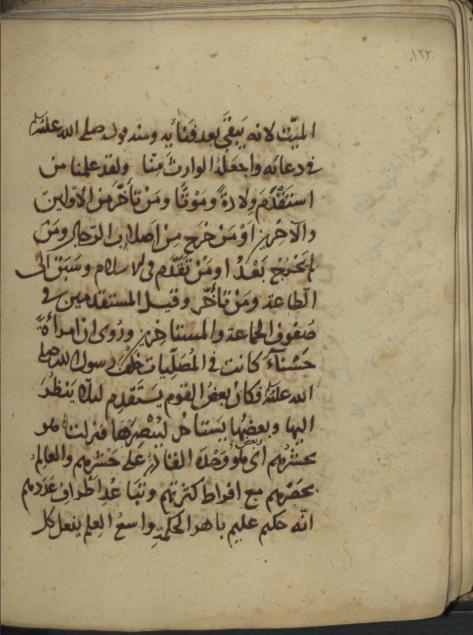 ١٢٢
الميّت لانه يَبقى بعد فَنائه ومنه قوله صلى الله عليه
في دعائه واجعله الوارث منا ولقد علمنا من
استَقْدَمَ وِلادةً ومَوْتًا ومَنْ تأخّر من الاوّلين
والآخرين اَوْ مَنْ خرج مِن اَصلاب الرّجال ومَنْ
لم يَخْرج بَعْدُ او مَنْ تَقَدَّم في الاسلام وسَبَق الى
الطاعة ومَن تأخّر وقيل المستقدمين في
صفوف الجماعة والمستاخرين ورُوى ان امرأةً
حَسْناءَ كانت في المُصَلّيات خلف رسول الله صلى
الله عليه فكان بعض القوم يَستقدم لئلا يَنظُرَ
اليها وبعضها يستاخر ليُبْصِرَها فنزلت هو
يحشرهم اى هو وَحْدَه القادر على حَشْرهم والعالم
بحَصْرهم مع افراط كثرتهم وتباعُد اطراف عددهم
انّه حكيم عليم باهر الحكمة واسع العلم يفعل كل